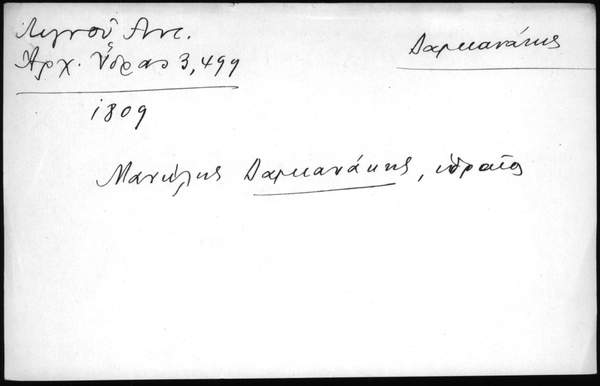 Λιγνοῦ Ἀντ.
Ἀρχ. Ὕδρας 3,499
Δαρμανάκης
1809
Μανώλης Δαρμανάκης, ὑδραῖος